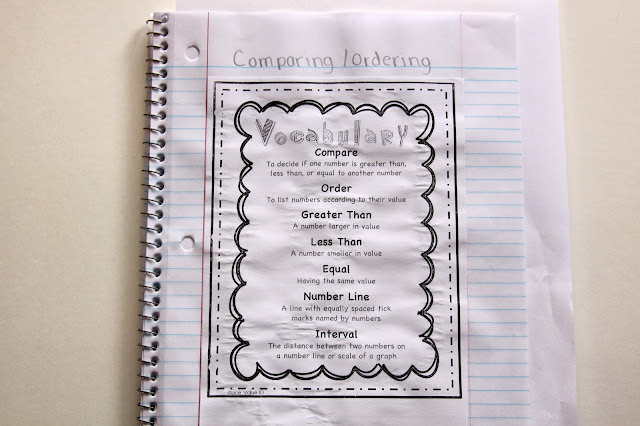 Comparing /Ordering
Vocabulary
Compare
To decide if one number is greater than,
less than, or equal to another number
Order
To list numbers according to their value
Greater Than
A number larger in value
Less Than
A number smaller in value
Equal
Having the same value
Number Line
A line with equally spaced tick
marks named by numbers
Interval
The distance between two numbers on
a number line or scale of a graph
Place Value